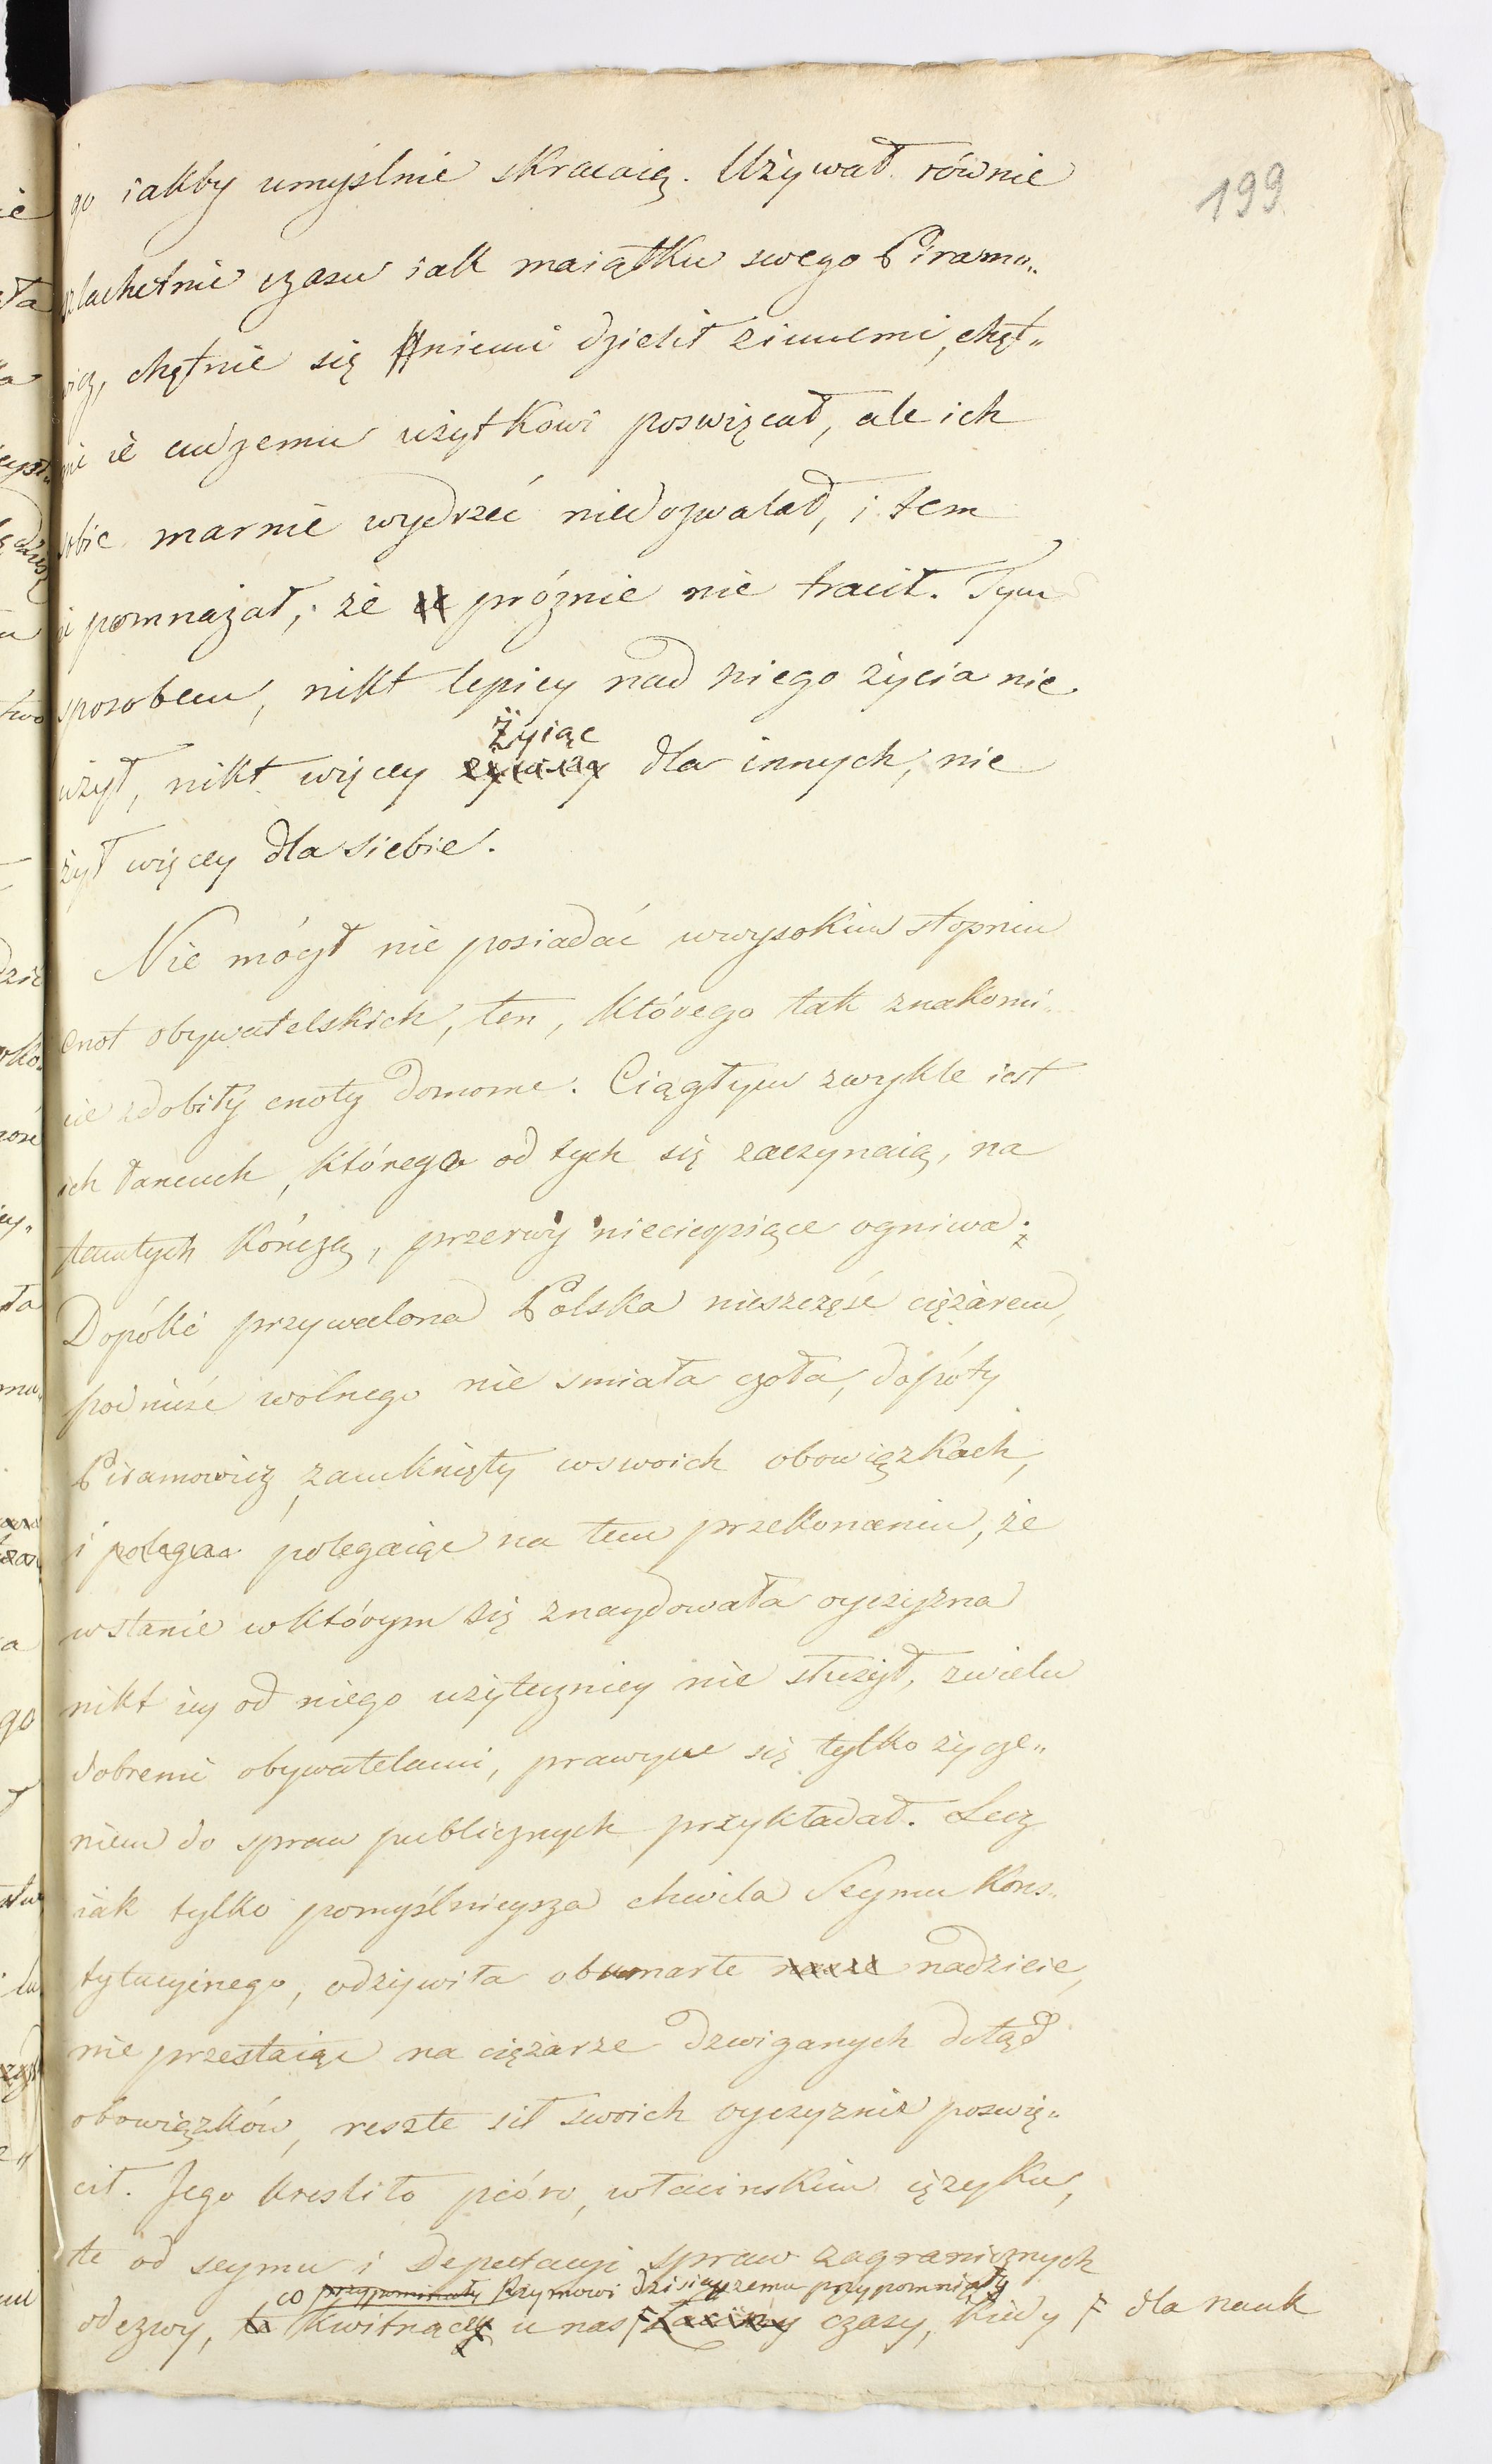 199
go iakby umyślnie skracaią. Używał równie
szlachetnie czasu iak maiątku swego Piramo„
wicz, chętnie się niemi dzielił zinnemi, chęt„
nie ie cudzemu użytkowi poswięcał, ale ich
sobie marnie wydrzeć niedozwalał, i tem
i pomnażał, że ie próżnie nie tracił. Tym
sposobem, nikt lepiey nad niego życia nie
Żyiąc
użył, nikt więcey dla innych, nie
żył więcey dla siebie.
Nie mógł nie posiadać wwysokim stopniu
Cnot obywatelskich, ten, którego tak znakomi„
cie zdobiły cnoty domome. Ciągłym zwykle iest
ich łancuch, którego od tych się zaczynaią, na
tamtych kończą, przerwy niecierpiące ogniwa;
Dopóki przywalona Polska nieszczęść ciężarem,
podnieść wolnego nie smiała czoła, dopóty
Piramowicz zamknięty wswoich obowiązkach,
i polegaa polegaiąc na tem przekonaniu, że
wstanie wktórym się znaydowała oyczyzna
nikt iey od niego użyteczniey nie służył, zwielu
dobremi obywatelami, prawym się tylko życze„
niem do spraw publicznych przykładał. Lecz
iak tylko pomyślnieysza chwila Seymu Kons„
tytucyinego, odżywiła obumarłe nasze nadzieie,
nie przestaiąc na ciężarze dzwiganych dotąd
obowiązków, reszte sił swoich oyczyznie poswię„
cił. Jego kreśliło pióro, włacinskim ięzyku,
te od seymu i Deputacyi spraw zagranicznych
co przypominały Rzymowi dzisieyszemu przypomniały
odezwy, te kwitnące u nas łaciny czasy, kiedy dla nauk